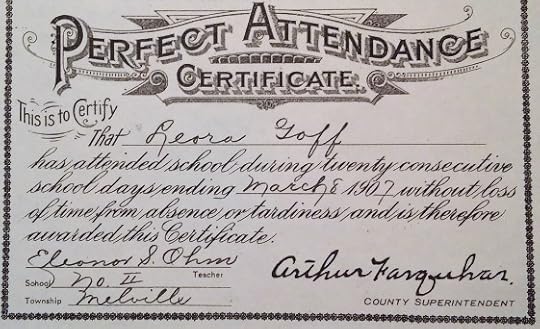 PERFECT ATTENDANCE
CERTIFICATE.
This is to Certify
That Leora Goff
has attended school, during twenty consecutive
school days, ending March 8 1907 without loss
of time, from absence or tardiness, and is therefore
awarded this Certificate.
Eleonor S. Ohm
Teacher
School No. II
Township Melville
Arthur Farquhar.
COUNTY SUPERINTENDENT